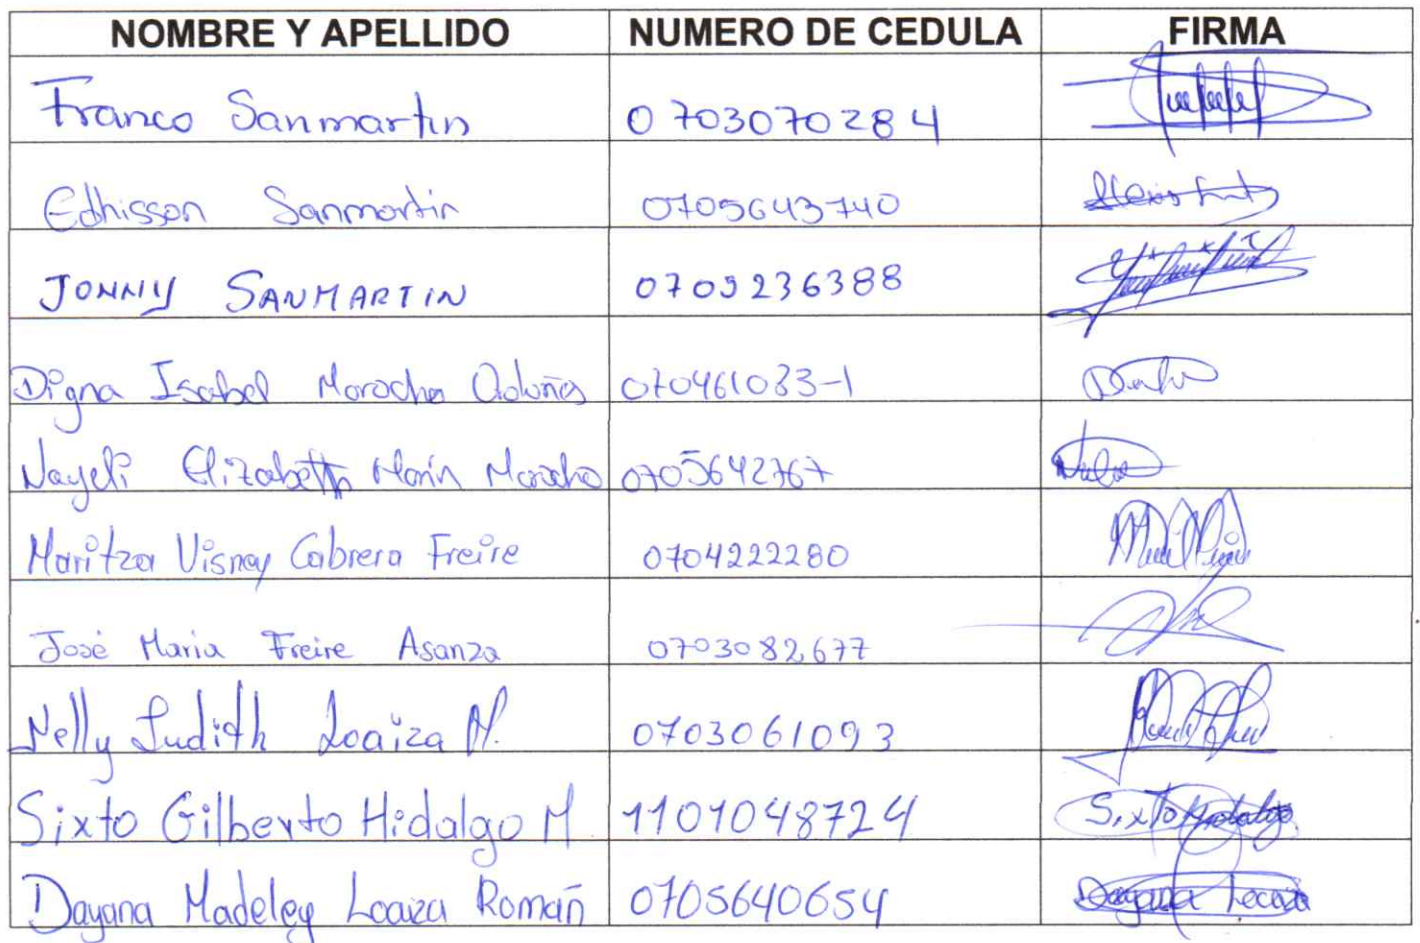 NOMBRE Y APELLIDO NUMERO DE CEDULA FIRMA
Franco Sanmartin 0703070284
Edhisson Sanmartin 0705643740
JONNY SANMARTIN 0705236388
Digna Isabel Morocho Ordoñes 070461033-1
Nayeli Elizabeth Marin Morocho 0705642767
Maritza Visney Cabrera Freire 0704222280
José Maria Freire Asanza 0703082677
Nelly Judith Loaiza M. 0703061093
Sixto Gilberto Hidalgo M 1101048724 Sixto Hidalgo
Dayana Madeley Loaiza Román 0705640654 Dayana Loaiza